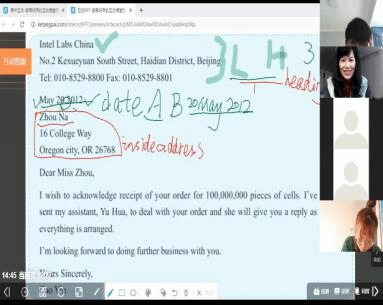 ketangpai.com/InteractPPT/preview/interactid/
自动观看
Intel Labs China
3 L H 3
No.2 Kexueyuan South Street, Haidian District, Beijing
Tel: 010-8529-8800 Fax: 010-8529-8801
heading
May 20 2012 date A B 20 May 2012
Zhou Na
16 College Way
Oregon city, OR 26768
inside address
Dear Miss Zhou,
I wish to acknowledge receipt of your order for 100,000,000 pieces of cells. I've
sent my assistant, Yu Hua, to deal with your order and she will give you a reply as
everything is arranged.
I'm looking forward to doing further business with you.
14:45
Yours Sincerely,